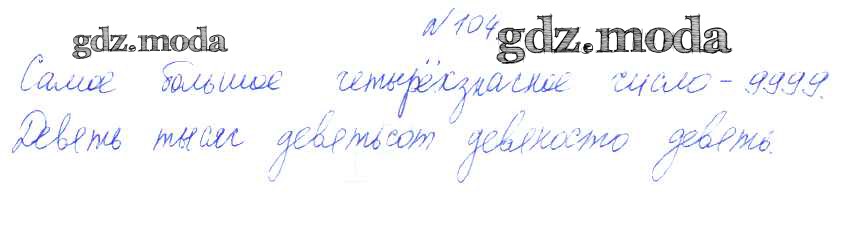 №104.
gdz.moda gdz.moda
Самое большое четырёхзначное число - 9999.
Девять тысяч девятьсот девяносто девять.